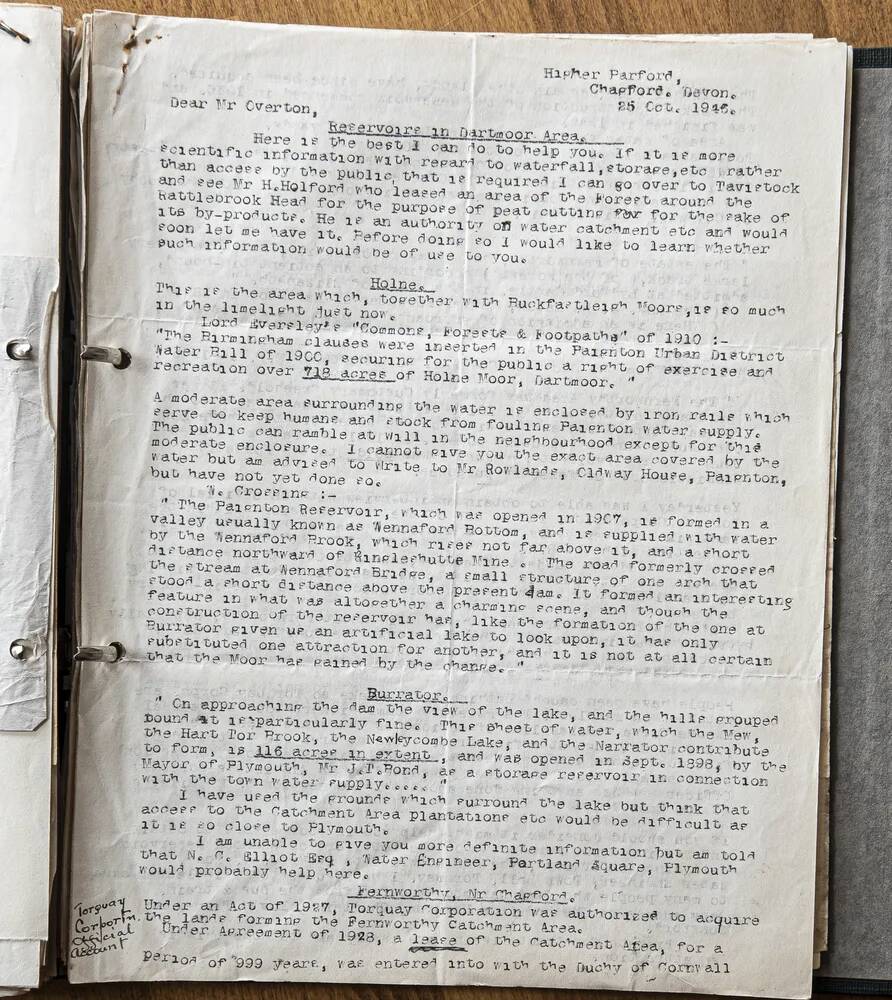 Higher Parford,
Chagford. Devon.
25 Oct. 1946.
Dear Mr Overton,
Reservoirs in Dartmoor Area.
Here is the best I can do to help you. If it is more
scientific information with regard to waterfall,storage,etc rather
than access by the public that is required I can go over to Tavistock
and see Mr H.Holford who leased an area of the Forest around the
Rattlebrook Head for the purpose of peat cutting for for the sake of
its by-products. He is an authority on water catchment etc and would
soon let me have it. Before doing so I would like to learn whether
such information would be of use to you.
Holne.
This is the area which, together with Buckfastleigh Moors,is so much
in the limelight just now.
Lord Eversley's "Commons, Forests & Footpaths" of 1910 :-
"The Birmingham clauses were inserted in the Paignton Urban District
Water Bill of 1900, securing for the public a right of exercise and
recreation over 718 acres of Holne Moor, Dartmoor. "
A moderate area surrounding the water is enclosed by iron rails which
serve to keep humans and stock from fouling Paignton water supply.
The public can ramble at will in the neighbourhood except for this
moderate enclosure. I cannot give you the exact area covered by the
water but am advised to write to Mr Rowlands, Oldway House, Paignton,
but have not yet done so.
W. Crossing :-
" The Paignton Reservoir, which was opened in 1907, is formed in a
valley usually known as Wennaford Bottom, and is supplied with water
by the Wennaford Brook, which rises not far above it, and a short
distance northward of Ringleshutte Mine . The road formerly crossed
the stream at Wennaford Bridge, a small structure of one arch that
stood a short distance above the present dam. It formed an interesting
feature in what was altogether a charming scene, and though the
construction of the reservoir has, like the formation of the one at
Burrator given us an artificial lake to look upon, it has only
substituted one attraction for another, and it is not at all certain
that the Moor has gained by the change. "
Burrator.
" On approaching the dam the view of the lake, and the hills grouped
round it is particularly fine. This sheet of water, which the Mew,
the Hart Tor Brook, the Newleycombe Lake, and the Narrator contribute
to form, is 116 acres in extent , and was opened in Sept. 1898, by the
Mayor of Plymouth, Mr J.T.Bond, as a storage reservoir in connection
with the town water supply..... "
I have used the grounds which surround the lake but think that
access to the Catchment Area plantations etc would be difficult as
it is so close to Plymouth.
I am unable to give you more definite information but am told
that N. C. Elliot Esq , Water Engineer, Partland Square, Plymouth
would probably help here.
Fernworthy, Nr Chagford.
Torquay
Corportn.
Official
account
Under an Act of 1927, Torquay Corporation was authorized to acquire
the lands forming the Fernworthy Catchment Area.
Under Agreement of 1928, a lease of the Catchment Area, for a
period of 999 years, was entered into with the Duchy of Cornwall